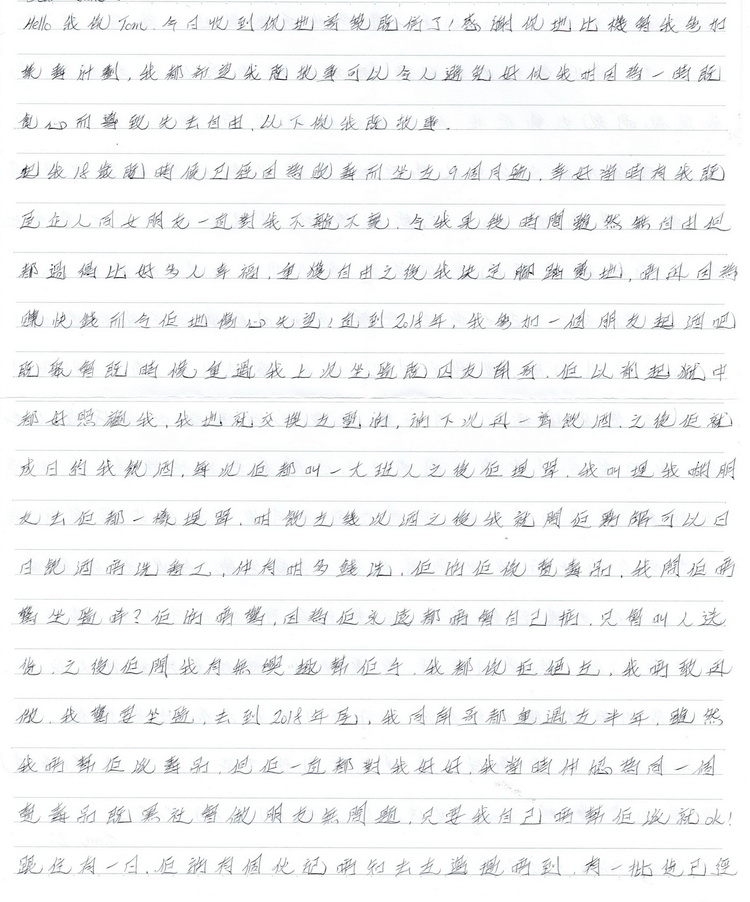 Hello 我係 Tom. 今日收到你地寄嚟既信了! 感謝你地比機會我參加
故事計劃, 我都希望我既故事可以令人避免好似我咁因為一時既
貪心而導致失去自由. 以下係我既故事.
起我18歲既時候已經因為販毒而坐左9個月監. 幸好當時有我既
屋企人同女朋友一直對我不離不棄. 令我果段時間雖然無自由但
都過得比好多人幸福, 重獲自由之後我決定腳踏實地, 唔再因為
賺快錢而令佢地擔心失望! 直到2018年, 我參加一個朋友起酒吧
既聚會既時候重遇我上次坐監既囚友南哥. 佢以前起獄中
都好照顧我, 我地就交換左電油, 話下次再一齊飲酒. 之後佢就
成日約我飲酒, 每次佢都叫一大班人之後佢埋單. 我叫埋我啲朋
友去佢都一樣埋單. 咁飲左幾次酒之後我就問佢點解可以日
日飲酒唔洗返工, 仲有咁多錢洗. 佢話佢係賣毒品. 我問佢唔
驚坐監咩? 佢話唔驚, 因為佢永遠都唔會自己揸, 只會叫人送
貨. 之後佢問我有無興趣幫佢手. 我都係拒絕左, 我唔敢再
做. 我驚要坐監. 去到2018年尾, 我同南哥都重遇左半年, 雖然
我唔幫佢送毒品. 但佢一直都對我好好. 我當時仲認為同一個
賣毒品既黑社會做朋友無問題, 只要我自己唔幫佢送就ok!
跟住有一日. 佢話有個伙記唔知去左邊搵唔到, 有一批貨已經